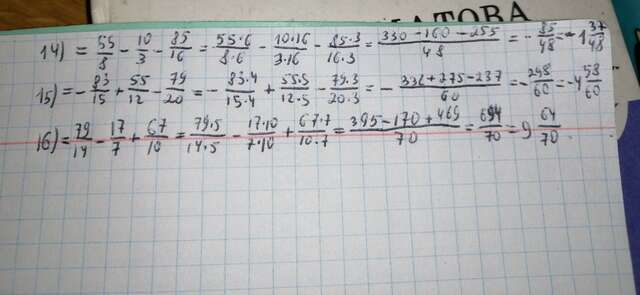 АТОВА
14) = 55/8 - 10/3 - 85/16 = 55·6/8·6 - 10·16/3·16 - 85·3/16·3 = 330-160-255/48 = - 85/48 = -1 37/48
15) = - 83/15 + 55/12 - 79/20 = - 83·4/15·4 + 55·5/12·5 - 79·3/20·3 = - 332+275-237/60 = - 298/60 = -4 58/60
16) = 79/14 - 17/7 + 67/10 = 79·5/14·5 - 17·10/7·10 + 67·7/10·7 = 395-170+469/70 = 694/70 = 9 64/70